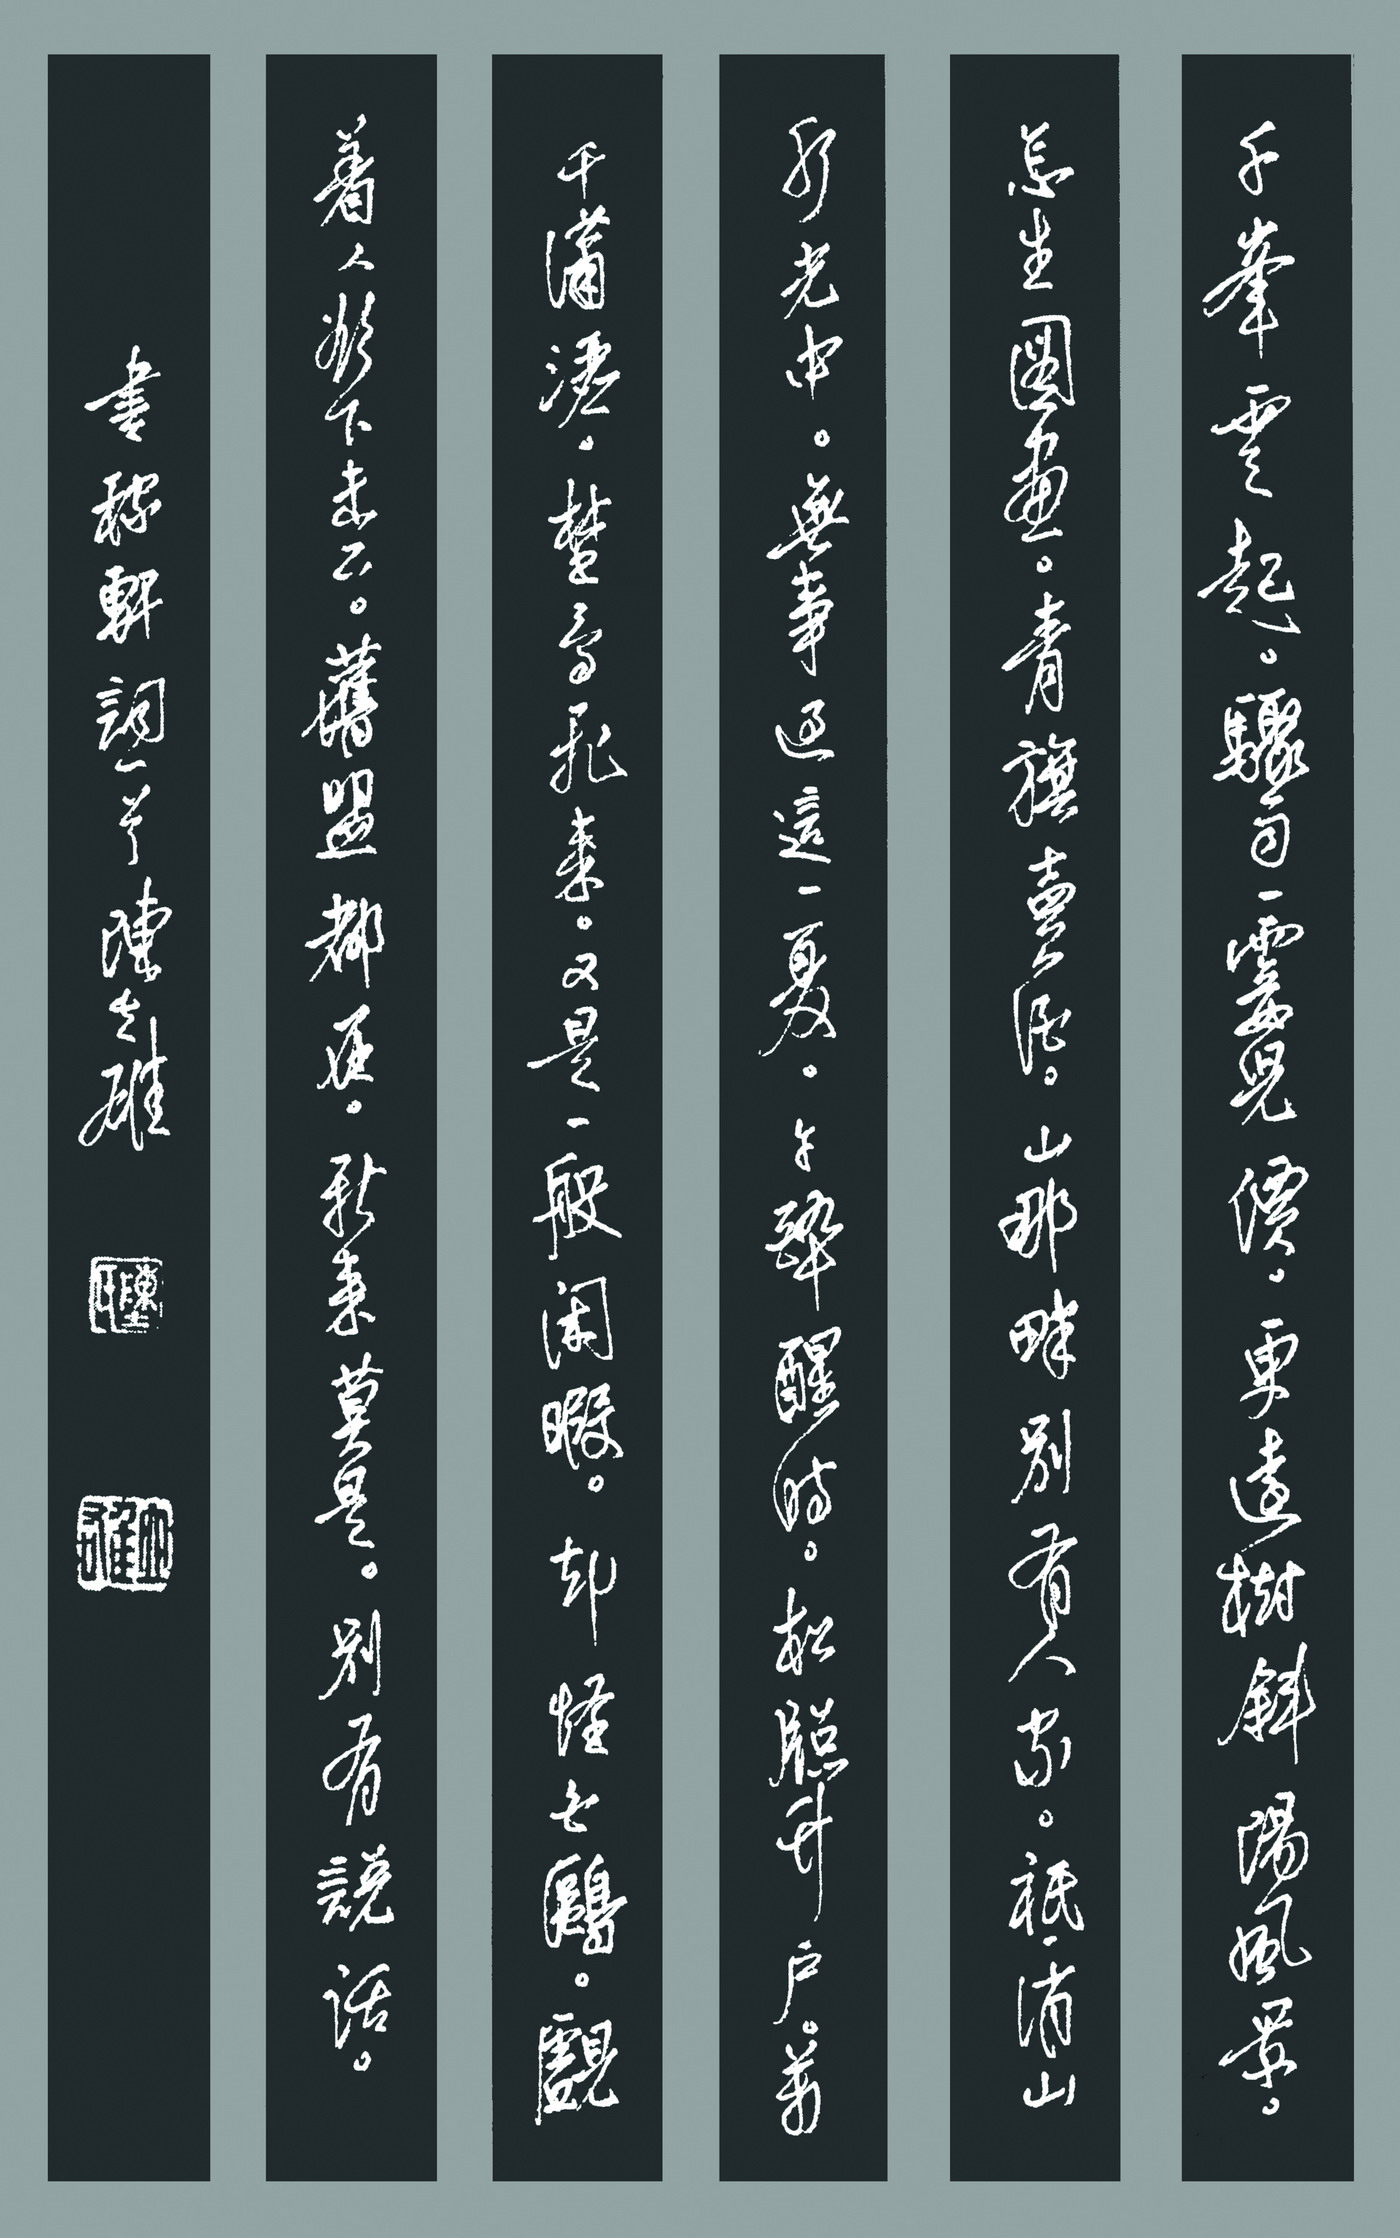 千峯雲起。驟雨一霎兒價。更遠樹斜陽風景。
怎生圖畫。青旗賣酒。山那畔別有人家。祇消山
水光中。無事過這一夏。午醉醒時。松牕竹户。萬
千瀟灑。埜鳥飛來。又是一般閑暇。却怪白鷗。覷
着人欲下未下。舊盟都在。新來莫是。別有說話。
書稼軒詞一首 陳